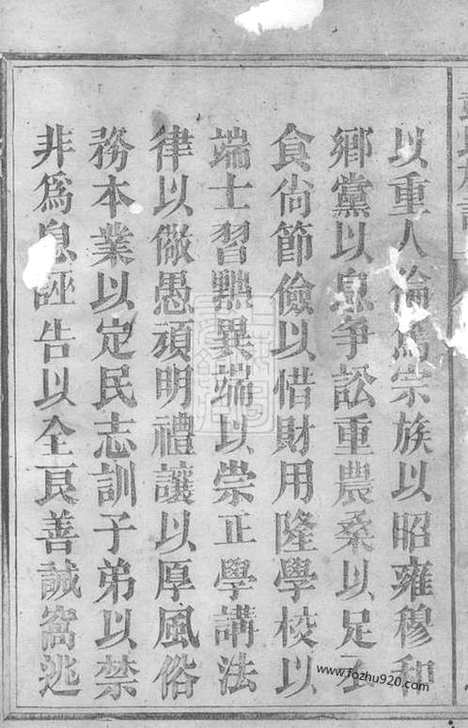 以重人倫篤宗族以昭雍穆和
鄉黨以息爭訟重農桑以足衣
食尚節儉以惜財用隆學校以
端士習黜異端以崇正學講法
律以儆愚頑明禮讓以厚風俗
務本業以定民志訓子弟以禁
非爲息誣告以全良善誡窩逃
www.fozhu920.com